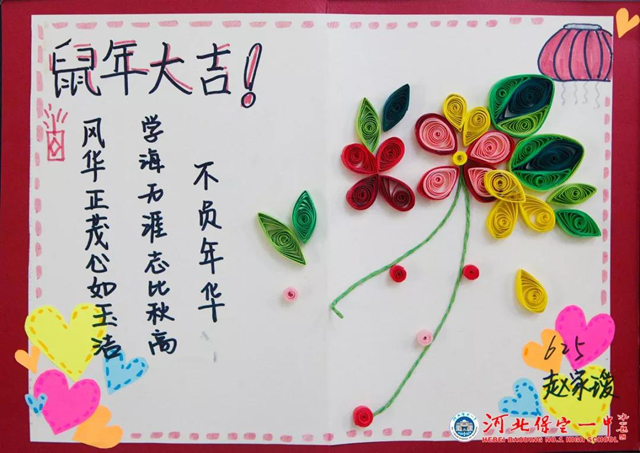 鼠年大吉!
不负年华
学海无涯志比秋高
风华正茂心如玉洁
625
赵家瑷
河北保定一中
HEBEI BAODING NO.1 HIGH SCHOOL